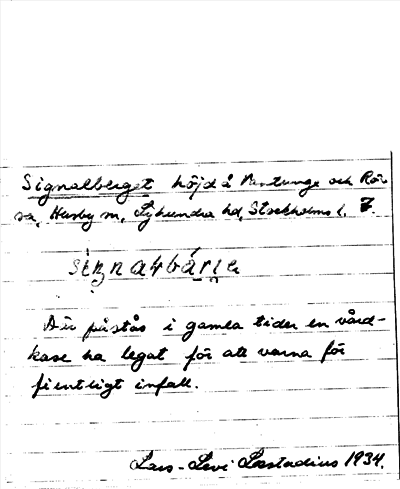 Signalberget höjd å Vantunge och Rör
sa, Husby sn, Lyhundra hd, Stockholms l. 7.
Där påstås i gamla tider en vård-
kase ha legat för att varna för
fientligt infall.
Lars-Levi Læstadius 1934.